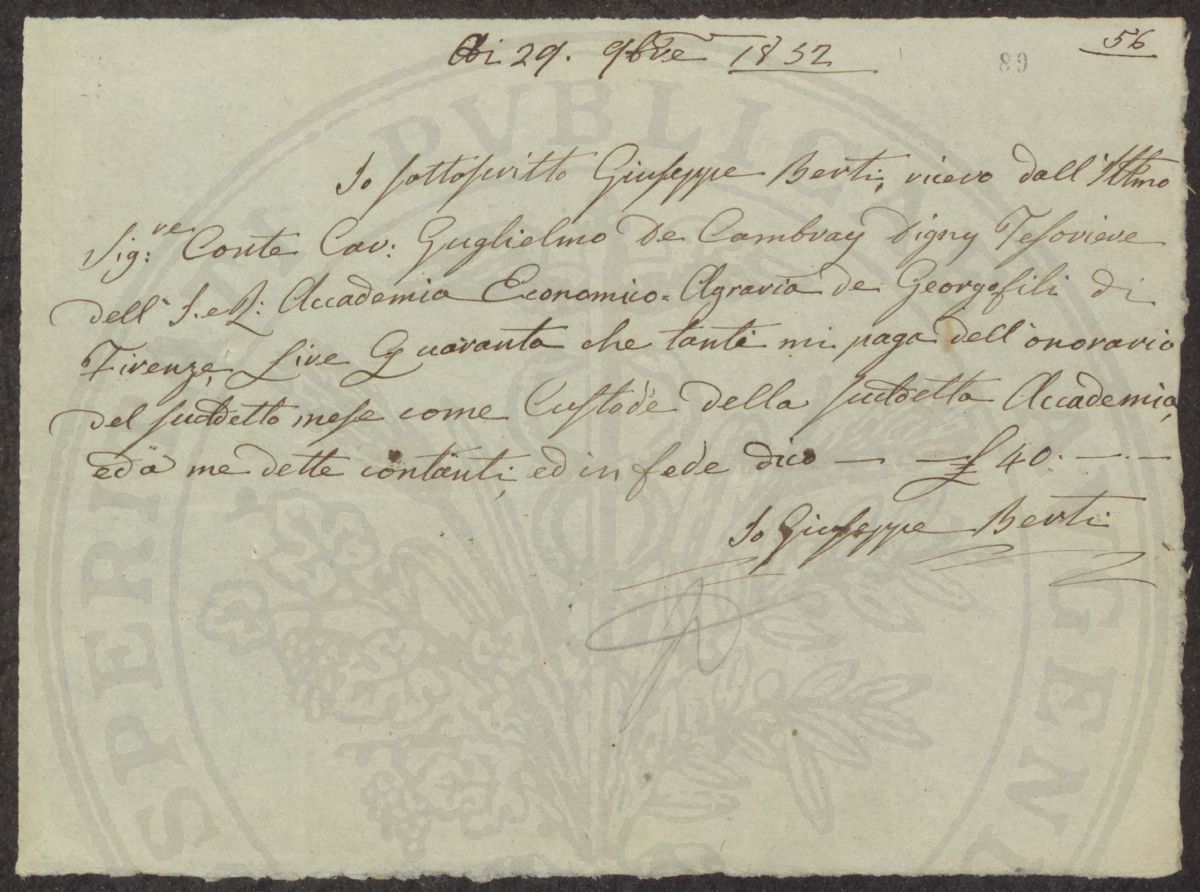 Adi 29. 9bre 1832
56
89
Io sottoscritto Giuseppe Berti, ricevo dall'Illmo
Sig:re Conte Cav: Guglielmo De Cambray Digny Tesoriere
dell' I. e R: Accademia Economico=Agraria de Georgofili di
Firenze, Lire Quaranta che tanti mi paga dell'onorario
del suddetto mese come Custode della suddetta Accademia,
ed a me dette contanti, ed in fede dico — — £ 40. — —
Io Giuseppe Berti
PROSPERITATI PUBLICAE AUGENDAE